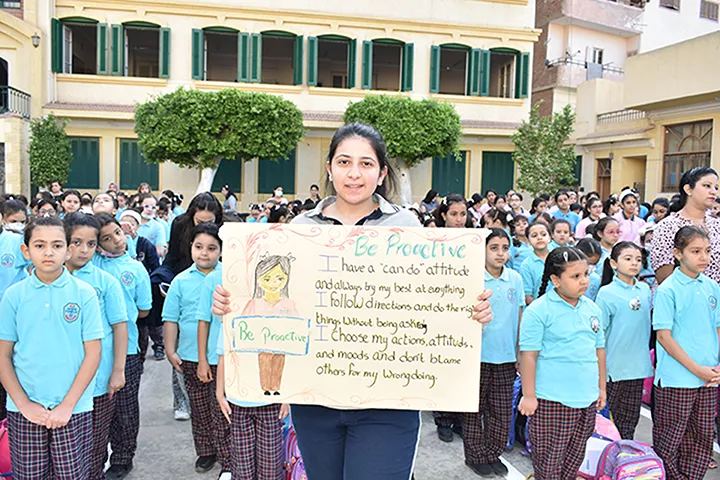 Be Proactive
I have a "can do" attitude
and always try my best at everything
I follow directions and do the right
things without being asked.
I choose my actions, attitude,
and moods and don't blame
others for my wrongdoing.
Be Proactive